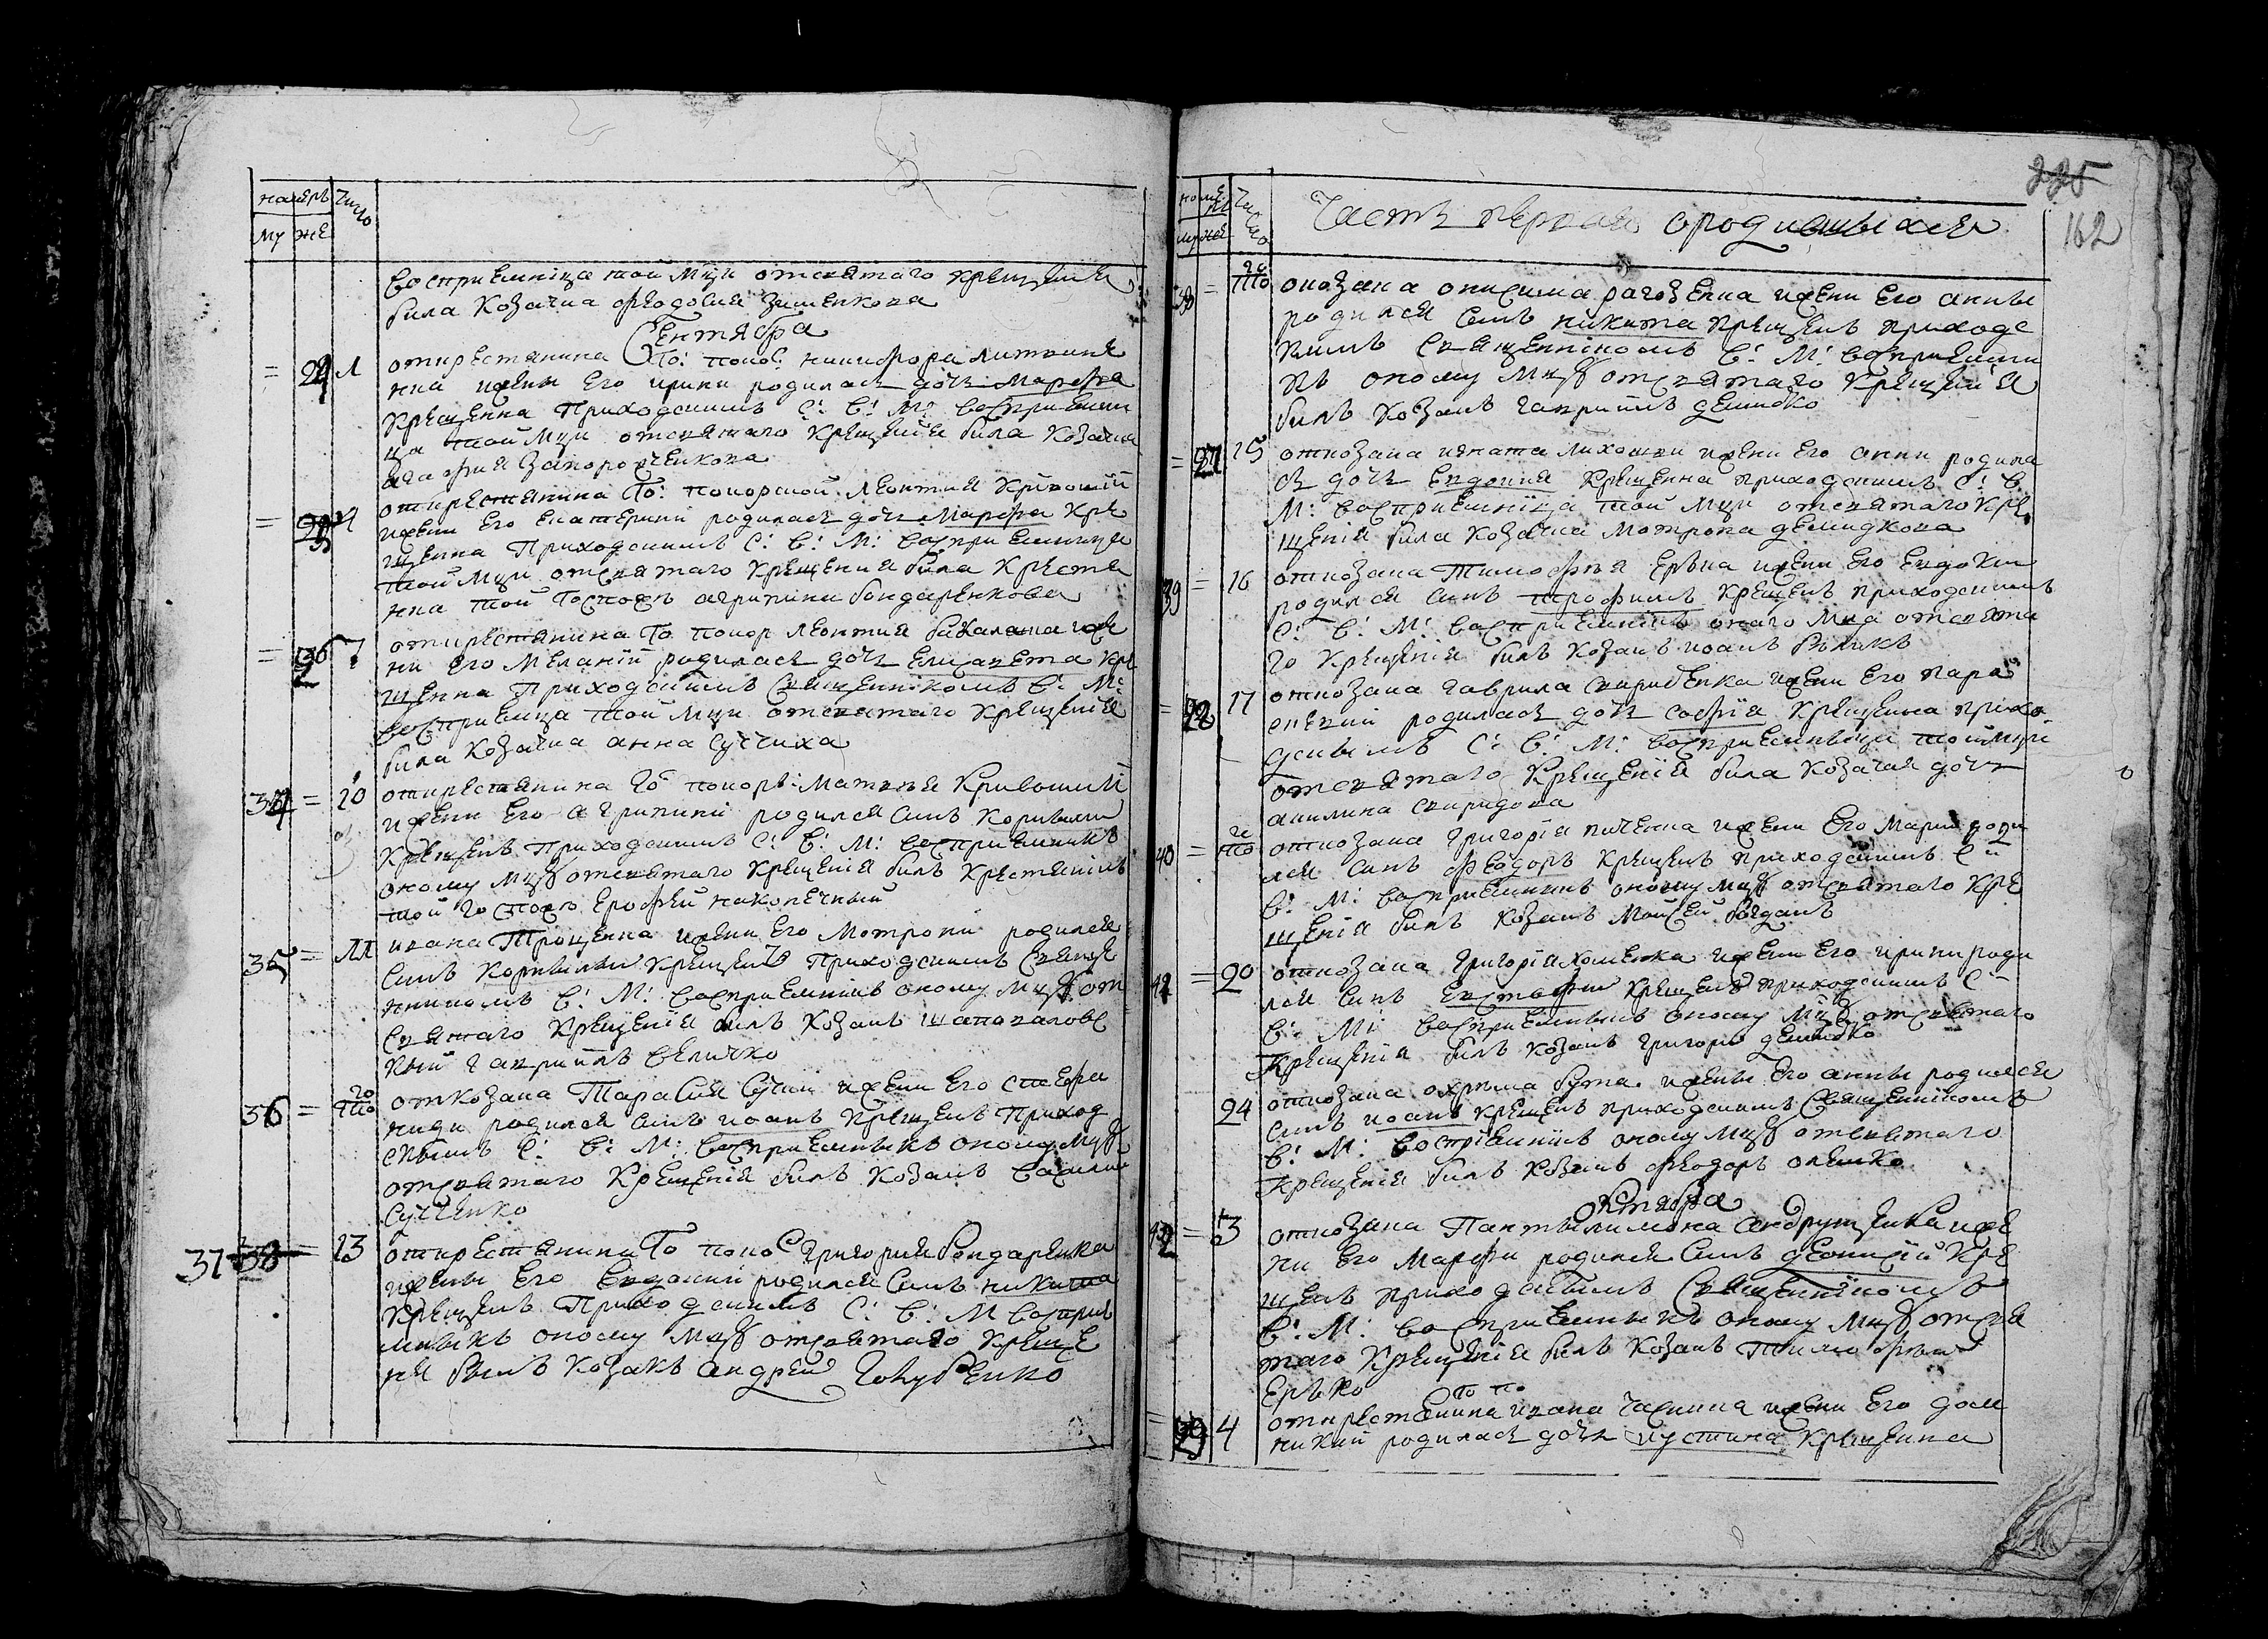 номеръ число
му же
восприемніца той мци отсвятаго крещения
била Козачка Феодосия зименкова
Сентября
= 29 Л открестянина Го: покор: никифора литвине
нка и жени Его ирини родилась дочь Марфа
Крещенна Приходскимъ С: В: М: восприемни
ца той мци отсвятаго Крещенія била Козачка
агафия запорожченкова
открестянина Го: покорской Леонтия Кривоший
= и жени Его Екатерини родилась дочь Марфа Кре
щенна Приходскимъ С: В: М: восприемница
той мци отсвятаго Крещения била Крестя
нка той Госпожъ агрипина бондаренкова
= 36 7 открестянина Го покор Леонтия бакалама и же
ни Его Меланіи родилась дочь Елисавета Кре
щенна Приходскимъ Священникомъ В: М:
восприемница той мци отсвятаго Крещенія
била Козачка анна Сучиха
34 = 10 открестянина Го покоръ: Матвея Кривоший
и жени Его агрипини родился Синъ Корнилии
Крещенъ Приходскимъ С: В: М: восприемникъ
оному мцу отсвятаго Крещенія билъ Крестянинъ
той госпожъ Ерофей наконечный
35 = ивана Трощенка и жени Его Мотрони родился
Синъ Корнилии Крещенъ Приходскимъ Священ
никомъ В: М: восприемникъ оному мцу от
святаго Крещенія билъ Козакъ шаповаловс
кий гавриилъ величко
36 = го тто отКозака Тарасия Сучки и жени Его стефа
ниди родился Синъ иоанъ Крещенъ Приход
скимъ С: В: М: восприемникъ оному мцу
отсвятаго Крещенія билъ Козакъ василий
Сученко
37 38 = 13 открестянина Го покос Григория бондаренка
и жени Его Евдокии родился Синъ никита
Крещенъ Приходскимъ С: В: М восприе
мникъ оному мцу отсвятаго Креще
ния былъ Козакъ андрей Голубенко
225
162
номеръ число
му же
Часть перваго ородившыхся
38 = го тто окозака онисима рагозенка и жени Его анны
родился Синъ никита Крещенъ приходс
кимъ Священникомъ В: М: восприемни
къ оному мцу отсвятаго Крещенія
билъ Козакъ гавриилъ демидко
= 31 15 откозака игната лихошви и жени Его анни родила
сь дочь Евдокия Крещенна приходскимъ С: В:
М: восприемніца той мци отсвятаго Кре
щенія била Козачка Мотрона демидкова
39 = 16 откозака Тимофея Ерька и жени Его Евдокии
родился Синъ Трофимъ Крещенъ приходскимъ
С: В: М: восприемникъ онаго мца отсвята
го Крещенія билъ Козакъ иоанъ
= 32 17 откозака Гаврила Свириденка и жени Его пара
скевии родилась дочь Софія Крещенна прихо
дскимъ С: В: М: восприемница той мци
отсвятаго Крещенія била Козачая дочь
акилина свиридова
40 = го тто откозака Григорія ниченка и жени Его Марии роди
лся Синъ Феодоръ Крещенъ приходскимъ С:
В: М: восприемникъ оному мцу отсвятаго Кре
щенія билъ Козакъ Мойсей богданъ
41 = 20 откозака Григорія хоменка и жени Его ирини роди
лся Синъ Евстафии Крещенъ приходскимъ С:
В: М: восприемникъ оному мцу отсвятаго
Крещенія билъ Козакъ Григорій демидко
24 откозака охрима бута и жени Его анны родился
Синъ иоанъ Крещенъ приходскимъ Священникомъ
В: М: воспріемникъ оному мцу отсвятаго
Крещенія билъ Козакъ феодоръ олешко
октября
42 = 3 откозака Пантелимона андрущенка и же
ни Его Марфи родился Синъ деонисій Кре
щенъ приходскимъ Священникомъ
В: М: восприемникъ оному мцу отсвя
таго Крещенія билъ Козакъ Тимофей
Ерько
= 4 открестянина Го по ивана Часника и жени Его дом
никии родилась дочь иустина Крещенна